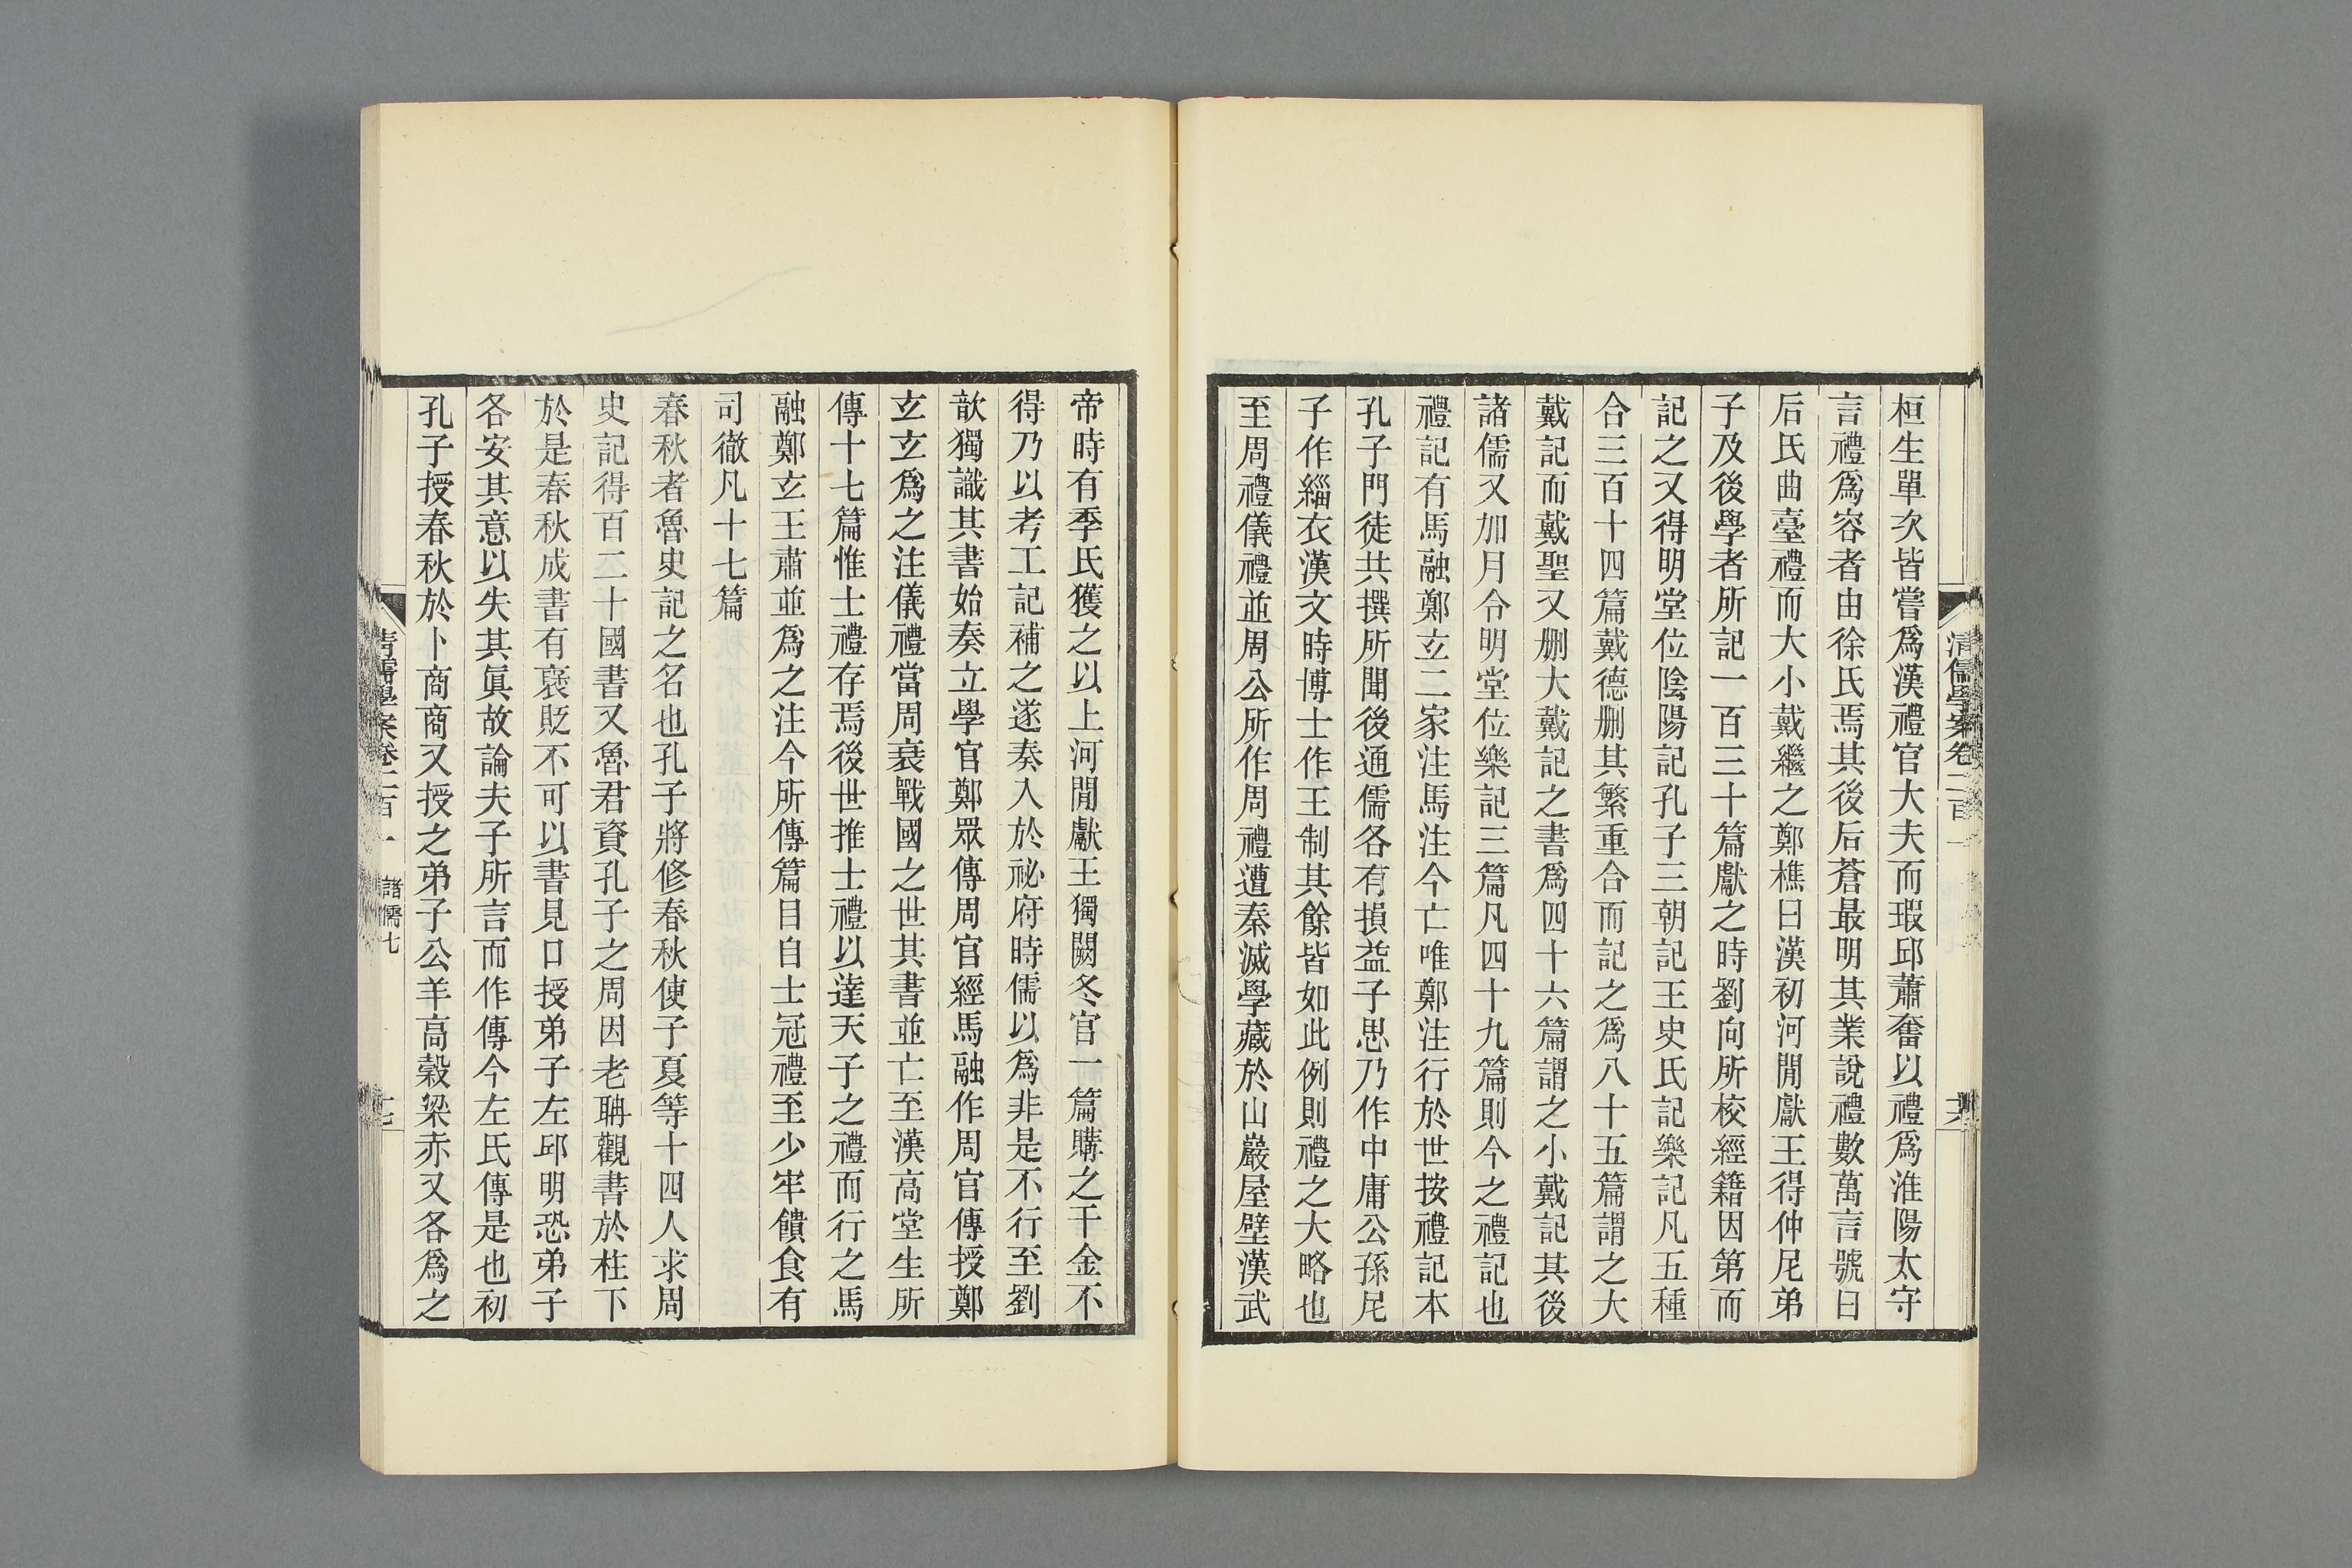 清儒學案卷二百一
桓生單次皆嘗爲漢禮官大夫而瑕邱蕭奮以禮爲淮陽太守
言禮爲容者由徐氏焉其後后蒼最明其業說禮數萬言號曰
后氏曲臺禮而大小戴繼之鄭樵曰漢初河閒獻王得仲尼弟
子及後學者所記一百三十篇獻之時劉向所校經籍因第而
記之又得明堂位陰陽記孔子三朝記王史氏記樂記凡五種
合三百十四篇戴德刪其繁重合而記之爲八十五篇謂之大
戴記而戴聖又刪大戴記之書爲四十六篇謂之小戴記其後
諸儒又加月令明堂位樂記三篇凡四十九篇則今之禮記也
禮記有馬融鄭玄二家注馬注今亡唯鄭注行於世按禮記本
孔子門徒共撰所聞後通儒各有損益子思乃作中庸公孫尼
子作緇衣漢文時博士作王制其餘皆如此例則禮之大略也
至周禮儀禮並周公所作周禮遭秦滅學藏於山巖屋壁漢武
帝時有季氏獲之以上河閒獻王獨闕冬官一篇購之千金不
得乃以考工記補之遂奏入於祕府時儒以爲非是不行至劉
歆獨識其書始奏立學官鄭眾傳周官經馬融作周官傳授鄭
玄玄爲之注儀禮當周衰戰國之世其書並亡至漢高堂生所
傳十七篇惟士禮存焉後世推士禮以達天子之禮而行之馬
融鄭玄王肅並爲之注今所傳篇目自士冠禮至少牢饋食有
司徹凡十七篇
春秋者魯史記之名也孔子將修春秋使子夏等十四人求周
史記得百二十國書又魯君資孔子之周因老聃觀書於柱下
於是春秋成書有褒貶不可以書見口授弟子左邱明恐弟子
各安其意以失其眞故論夫子所言而作傳今左氏傳是也初
孔子授春秋於卜商商又授之弟子公羊高穀梁赤又各爲之
清儒學案卷二百一 諸儒七
十七